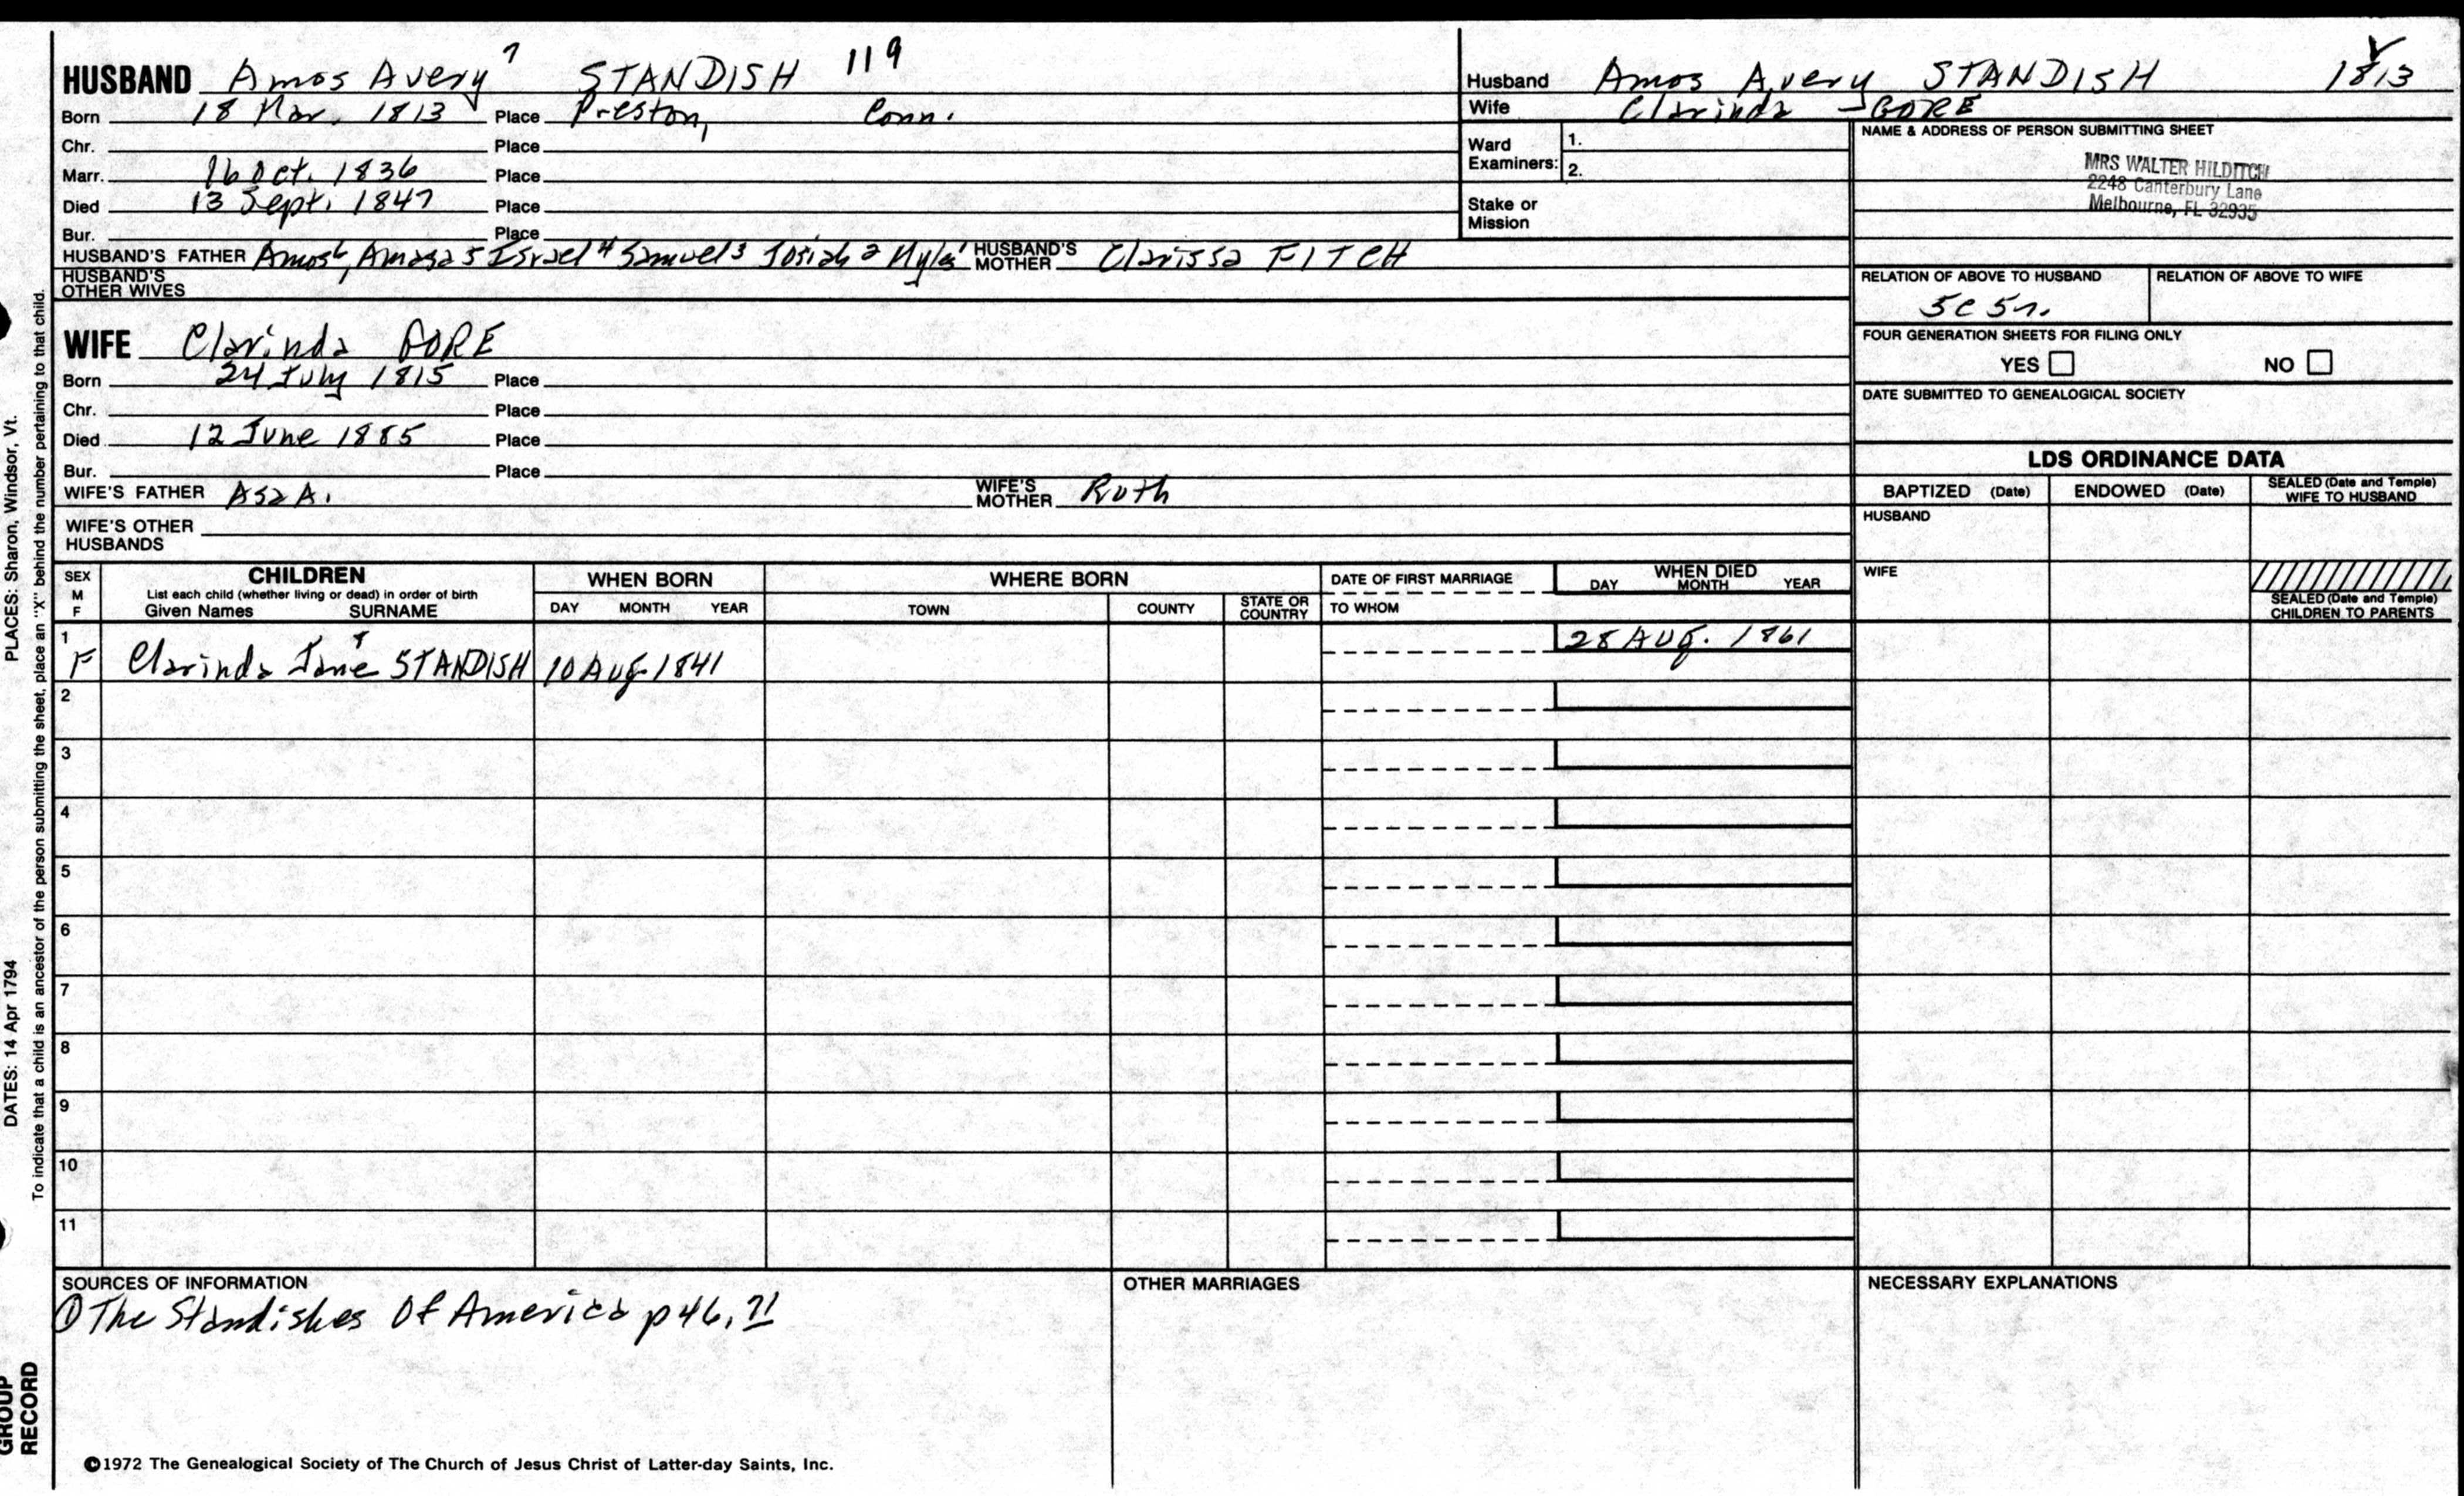 HUSBAND Amos Avery 7 STANDISH 119
Born 18 Mar. 1813 Place Preston, Conn.
Chr. Place
Marr. 16 Oct. 1836 Place
Died 13 Sept. 1847 Place
Bur. Place
HUSBAND'S FATHER Amos 6, Amasa 5 Israel 4 Samuel 3 Josiah 2 Myles 1 HUSBAND'S MOTHER Clarissa FITCH
HUSBAND'S OTHER WIVES
WIFE Clarinda GORE
Born 24 July 1815 Place
Chr. Place
Died 12 June 1885 Place
Bur. Place
WIFE'S FATHER Asa A. WIFE'S MOTHER Ruth
WIFE'S OTHER HUSBANDS
Husband Amos Avery STANDISH 1813
Wife Clarinda GORE
Ward Examiners: 1.
2.
Stake or Mission
NAME & ADDRESS OF PERSON SUBMITTING SHEET
MRS WALTER HILDITCH
2248 Canterbury Lane
Melbourne, FL 32935
RELATION OF ABOVE TO HUSBAND RELATION OF ABOVE TO WIFE
5c 5r.
FOUR GENERATION SHEETS FOR FILING ONLY
YES NO
DATE SUBMITTED TO GENEALOGICAL SOCIETY
LDS ORDINANCE DATA
BAPTIZED (Date) ENDOWED (Date) SEALED (Date and Temple) WIFE TO HUSBAND
HUSBAND
WIFE
SEALED (Date and Temple) CHILDREN TO PARENTS
SEX M F
CHILDREN
List each child (whether living or dead) in order of birth
Given Names SURNAME
WHEN BORN
DAY MONTH YEAR
WHERE BORN
TOWN COUNTY STATE OR COUNTRY
DATE OF FIRST MARRIAGE
TO WHOM
WHEN DIED
DAY MONTH YEAR
1 F Clarinda Jane 8 STANDISH 10 Aug. 1841 28 AUg. 1861
2
3
4
5
6
7
8
9
10
11
SOURCES OF INFORMATION
① The Standishes Of America p 46, 71
OTHER MARRIAGES
NECESSARY EXPLANATIONS
©1972 The Genealogical Society of The Church of Jesus Christ of Latter-day Saints, Inc.
PLACES: Sharon, Windsor, Vt.
DATES: 14 Apr 1794
To indicate that a child is an ancestor of the person submitting the sheet, place an "X" behind the number pertaining to that child.
GROUP
RECORD